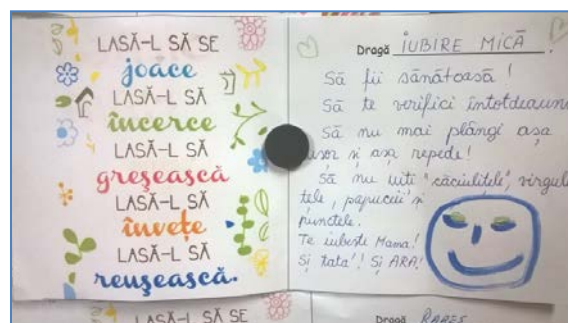 LASĂ-L SĂ SE
joace
LASĂ-L SĂ
încerce
LASĂ-L SĂ
greșească
LASĂ-L SĂ
învețe
LASĂ-L SĂ
reușească.
Dragă IUBIRE MICĂ
Să fii sănătoasă !
Să te verifici întotdeauna
Să nu mai plângi așa
ușor și așa repede!
Să nu uiți "căciulițele", virgule
tele, papucii și
punctele.
Te iubește Mama!
Și tata!! Și ARA!
LASĂ-L SĂ SE
Dragă RAREȘ